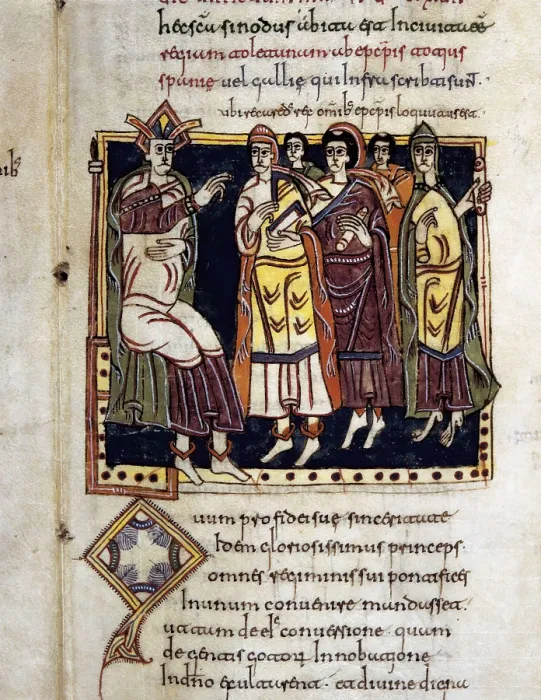 hec scā sinodus abita est In civitate
regiam toletanam ab epcpis totius
spanie vel gallie qui Infra scribti sunt.
ubi recaredꝰ rex omībꝰ epcpis
uum pro fidei sue sinceritate
Idem gloriosissimus princeps.
omnes regiminis sui pontifices
In unum convenire mandasset.
ut tam de eiꝰ conversione. quam
de gentis gotorꝝ Innobatione
In dn̄o exultarent. et divine digna